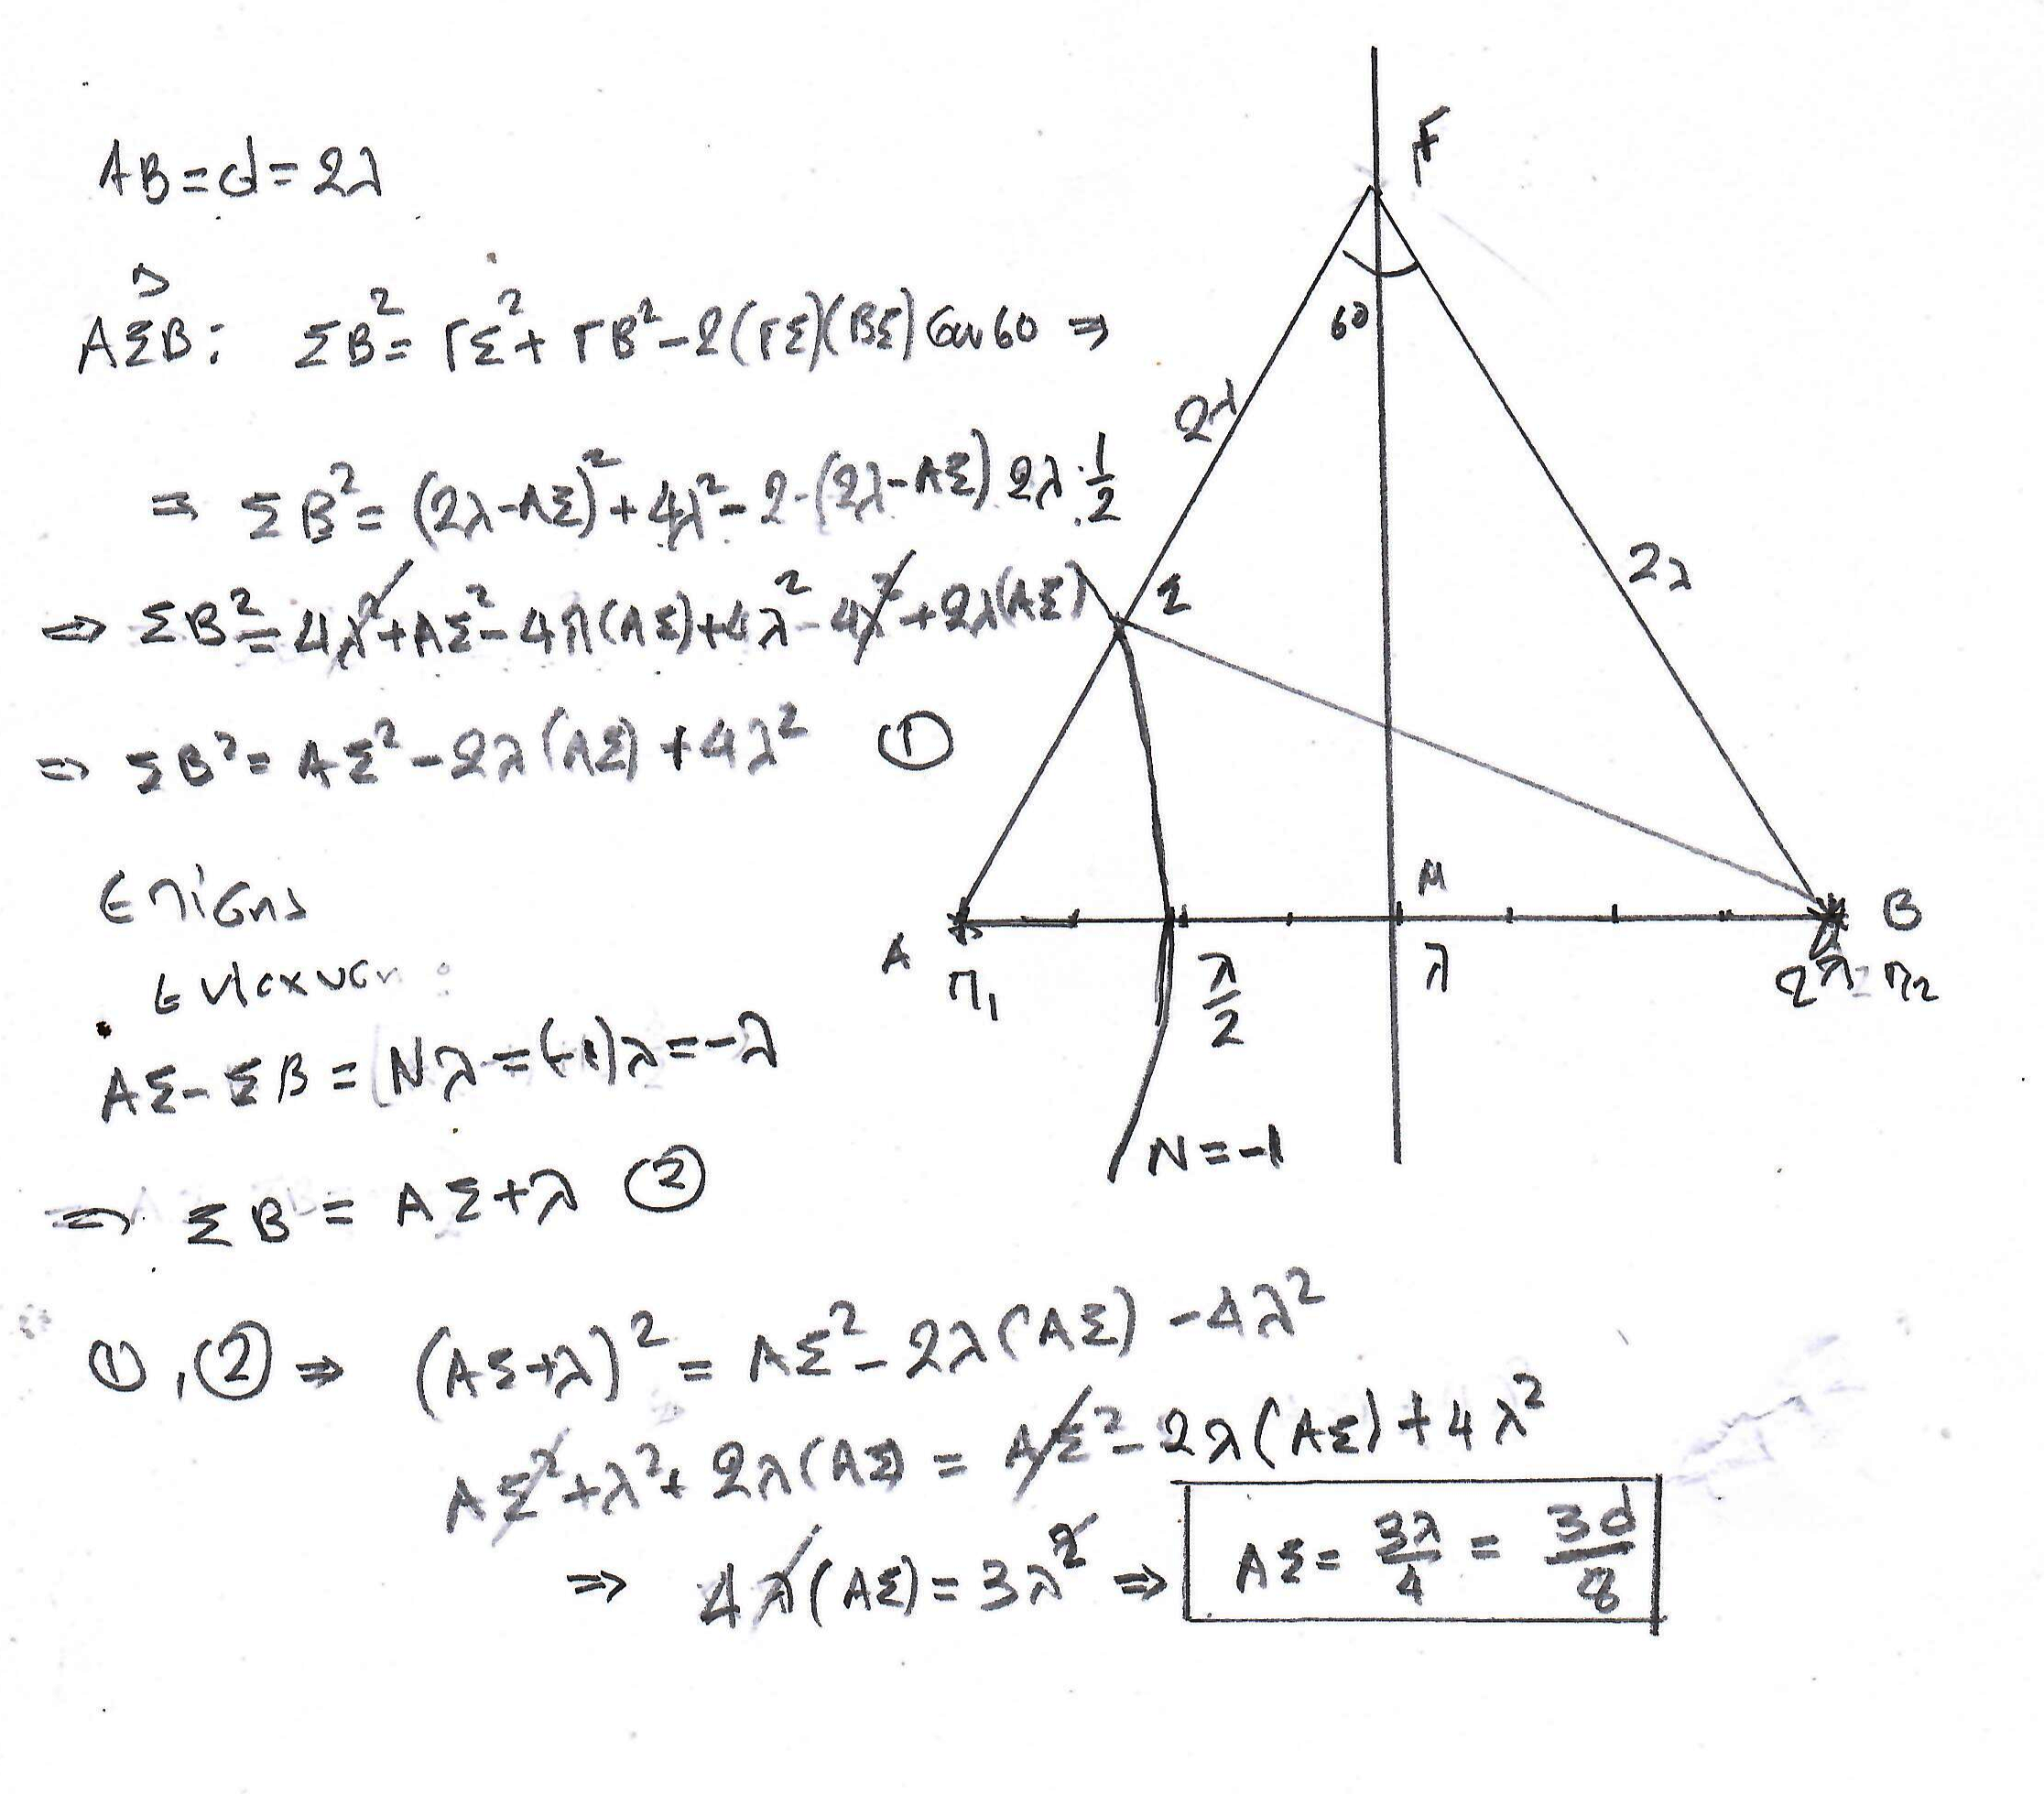 AB = d = 2λ
ΑΣΒ: ΣΒ² = ΓΣ² + ΓΒ² - 2(ΓΣ)(ΒΣ) συν60 ⇒
⇒ ΣΒ² = (2λ-ΑΣ)² + 4λ² - 2·(2λ-ΑΣ) 2λ·1/2
⇒ ΣΒ² = 4λ² + ΑΣ² - 4λ(ΑΣ) + 4λ² - 4λ² + 2λ(ΑΣ)
⇒ ΣΒ² = ΑΣ² - 2λ(ΑΣ) + 4λ² ①
Επίσης
ενίσχυση:
ΑΣ - ΣΒ = Νλ = (-1)λ = -λ
⇒ ΣΒ = ΑΣ + λ ②
①, ② ⇒ (ΑΣ+λ)² = ΑΣ² - 2λ(ΑΣ) - 4λ²
ΑΣ² + λ² + 2λ(ΑΣ) = ΑΣ² - 2λ(ΑΣ) + 4λ²
⇒ 4λ(ΑΣ) = 3λ² ⇒ ΑΣ = 3λ/4 = 3d/8
Γ
60
2λ
2λ
Σ
Μ
Α
Β
Π1
λ/2
λ
2λ Π2
Ν = -1